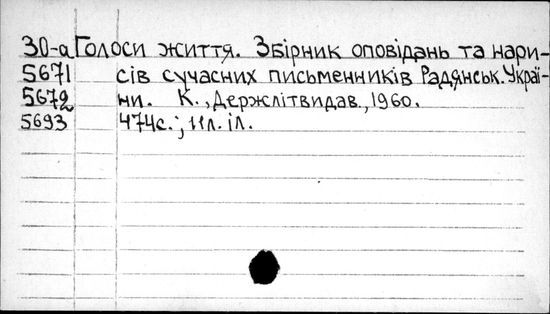 30-а Голоси життя. Збірник оповідань та нари-
5671 сів сучасних письменників Радянськ. Украї-
5672 ни. К., Держлітвидав, 1960.
5693 474с.; 11л. іл.